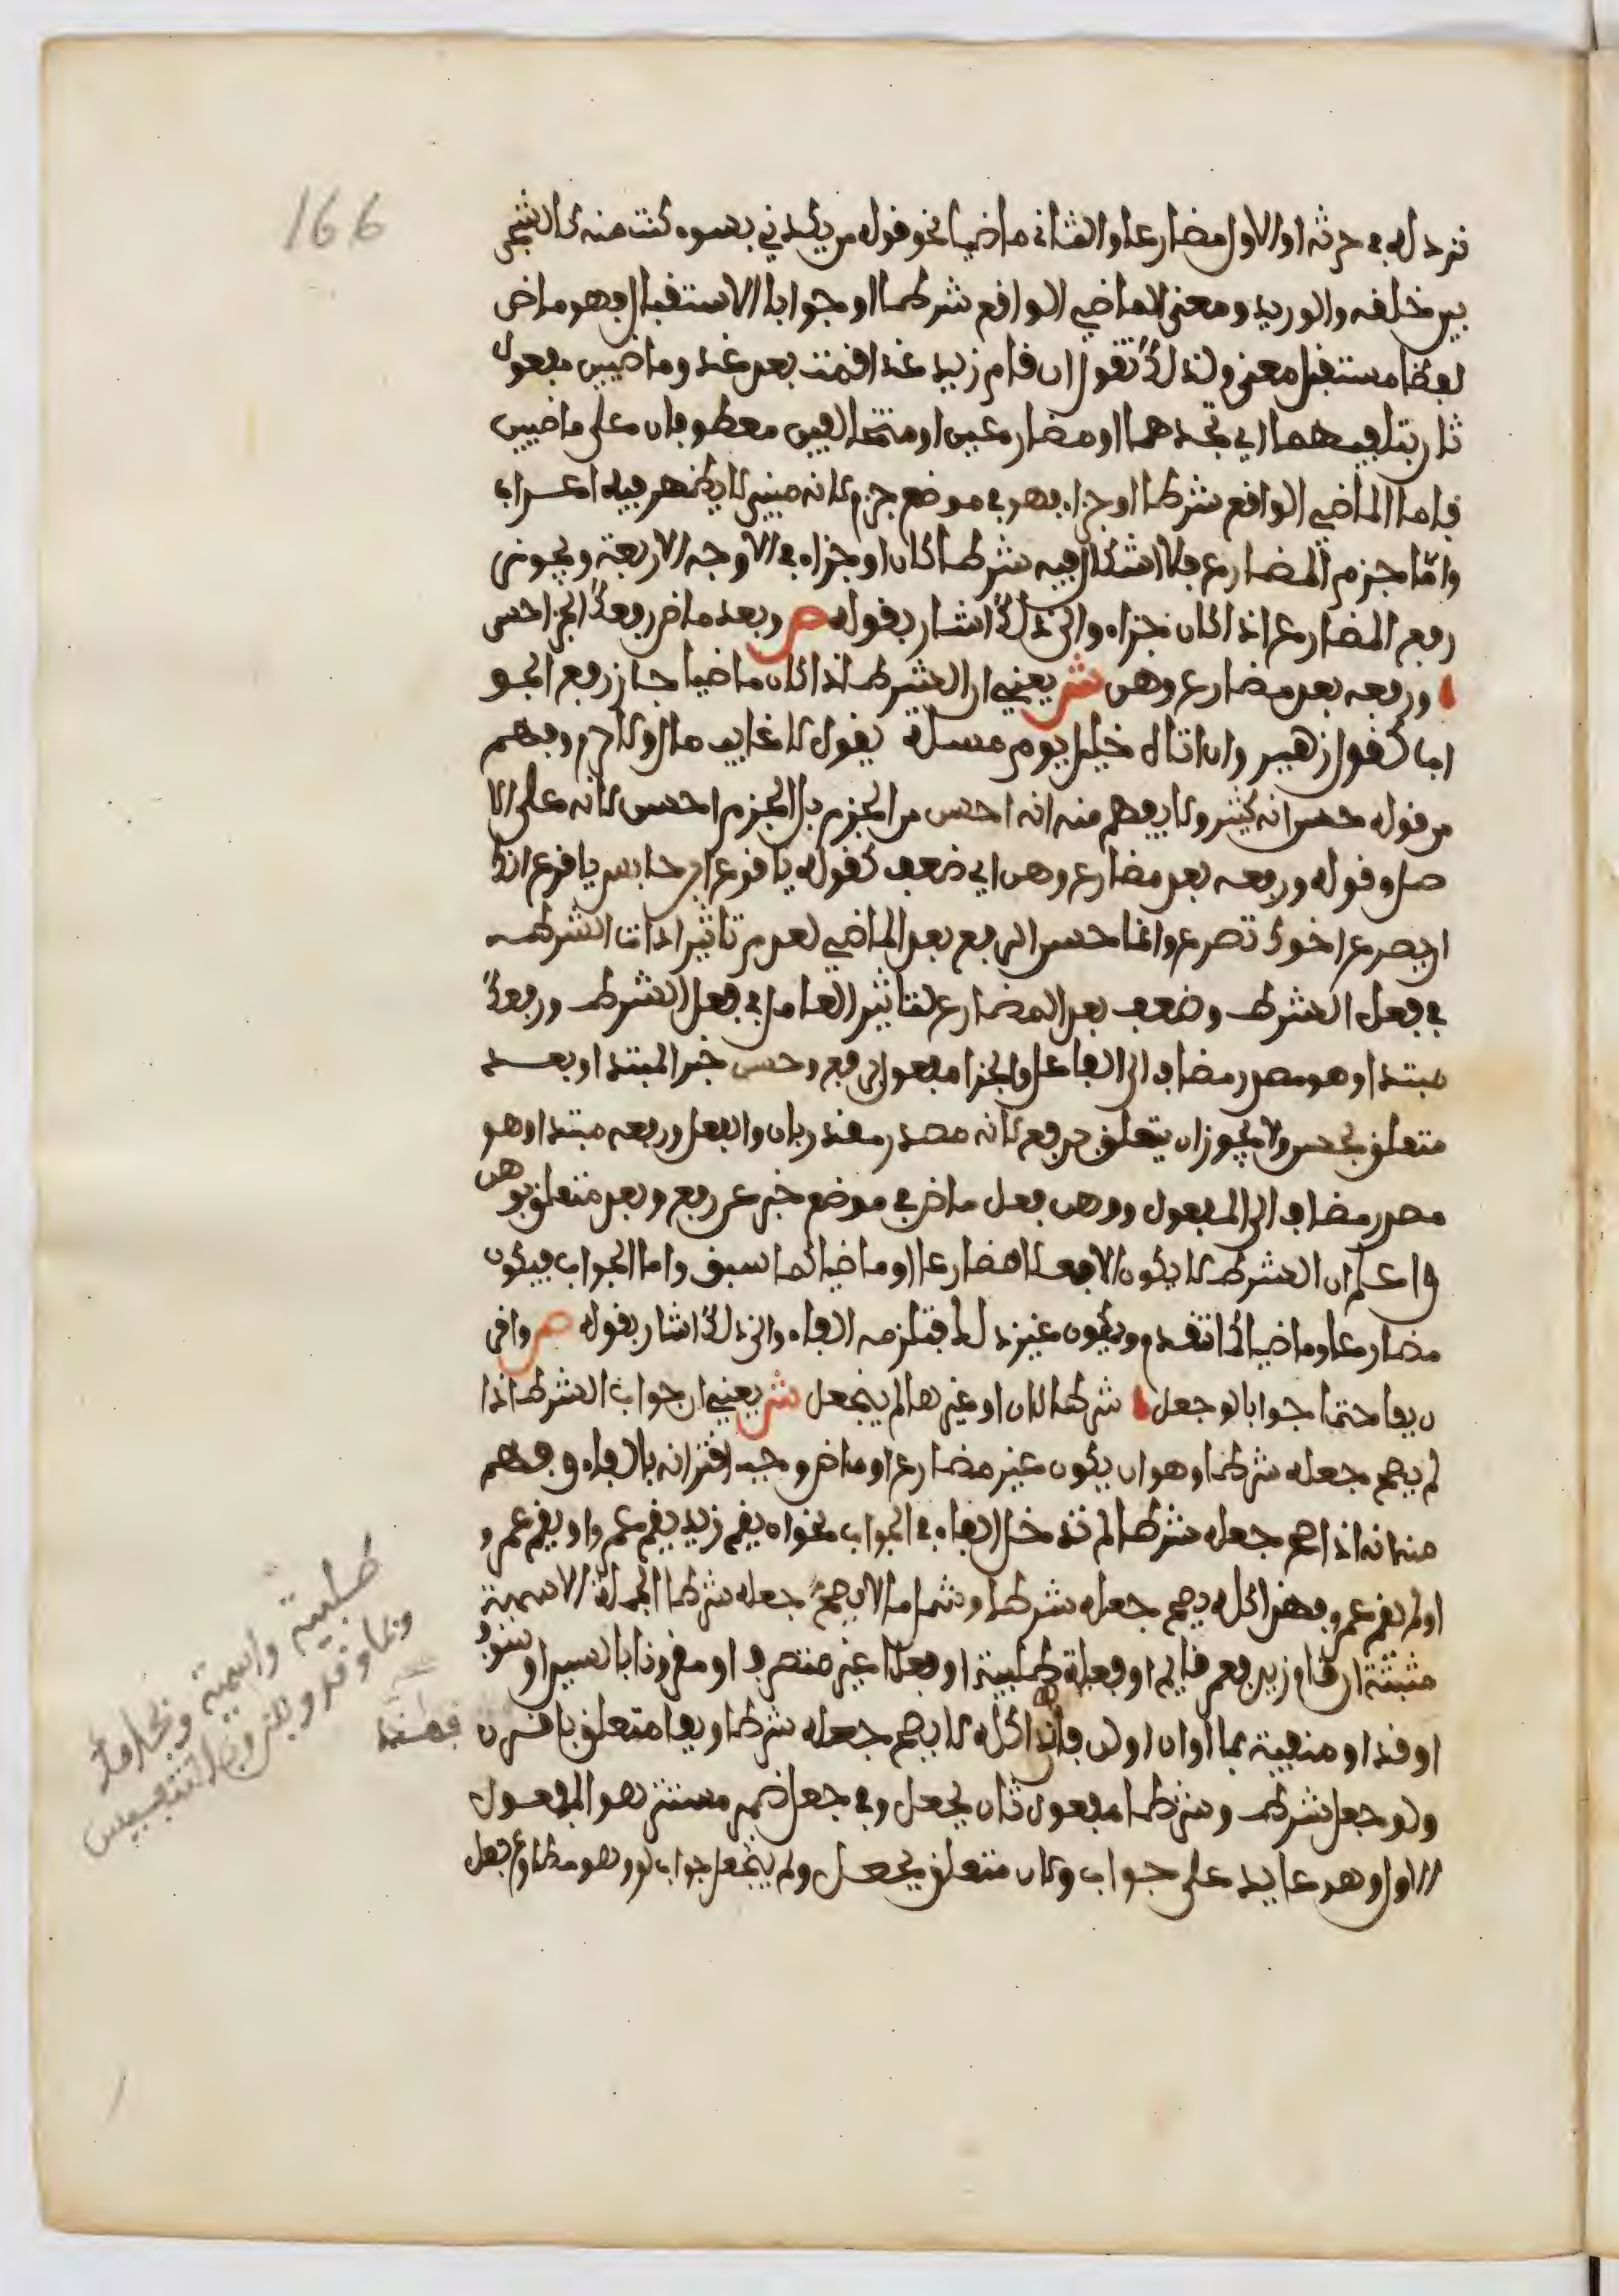 166
نزد له في حرثه او الاول مضارعا والثاني ماضيا نحو قوله من يكدني بسوء كنت منه كالشجى
بين حلقه والوريد ومعنى الماضي الواقع شرطا او جوابا الاستقبال فهو ماض
لفظا مستقبل معنى ولذلك تقول ان قام زيد غدا قمت بعد غد وماضيين مفعول
ثان بتلفيهما اي تجدهما او مضارعين او متخالفين معطوفان على ماضيين
فاما الماضي الواقع شرطا او جزاء فهو في موضع جزم لانه مبني لا يظهر فيه اعراب
واما جزم المضارع فلا اشكال فيه شرطا كان او جزاء في الاوجه الاربعة ويجوز
رفع المضارع اذا كان جزاء والى ذلك اشار بقوله ص وبعد ماض رفعك الجزا حسن
ورفعه بعد مضارع وهن ش يعني ان الشرط اذا كان ماضيا جاز رفع الجو
اب كقول زهير وان اتاه خليل يوم مسئلة يقول لا غايب مالي ولا حرم وفهم
من قوله حسن انه كثير ولا يفهم منه انه احسن من الجزم بل الجزم احسن لانه على الا
صل وقوله ورفعه بعد مضارع وهن اي ضعف كقوله يا اقرع ابن حابس يا اقرع انك
ان يصرع اخوك تصرع وانما حسن الرفع بعد الماضي لعدم تاثير اداة الشرط
في فعل الشرط وضعف بعد المضارع لتاثير العامل في فعل الشرط ورفعك
مبتدا وهو مصدر مضاف الى الفاعل والجزا مفعول برفع وحسن خبر المبتدا وبعد
متعلق بحسن ولا يجوز ان يتعلق برفع لانه مصدر مقدر بان والفعل ورفعه مبتدا وهو
مصدر مضاف الى المفعول ووهن فعل ماض في موضع خبر عن رفع وبعد متعلق بوهن
واعلم ان الشرط لا يكون الا فعلا مضارعا او ماضيا كما سبق واما الجواب فيكون
مضارعا وماضيا كما تقدم ويكون غير ذلك فتلزمه الفاء والى ذلك اشار بقوله ص واقر
ن بفا حتما جوابا لو جعل شرطا لان او غيرها لم ينجعل ش يعني ان جواب الشرط اذا
لم يصح جعله شرطا وهو ان يكون غير مضارع او ماض وجب اقترانه بالفاء وفهم
منه انه اذا صح جعله شرطا لم تدخل الفاء في الجواب نحو ان يقم زيد يقم عمرو او يقم عمرو
او لم يقم عمرو فهذا كله يصح جعله شرطا وشمل ما لا يصح جعله شرطا الجملة الاسمية
مثبتة ان قام زيد فعمر قايم او فعلية طلبية او فعلا غير متصرف او مقرونا بالسين او سوف
او قد او منفية بما او ان او لن فان ذا كله لا يصح جعله شرطا وبفا متعلق باقرن
ولو جعل شرط وشرطا مفعول ثان بجعل وفي جعل ضمير مستتر هو المفعول
الاول وهو عايد على جواب ولان متعلق بجعل ولم ينجعل جواب لو وهو مطاوع جعل
طلبية واسمية وبجامد
وبما وقد وبلن وبالتنفيس